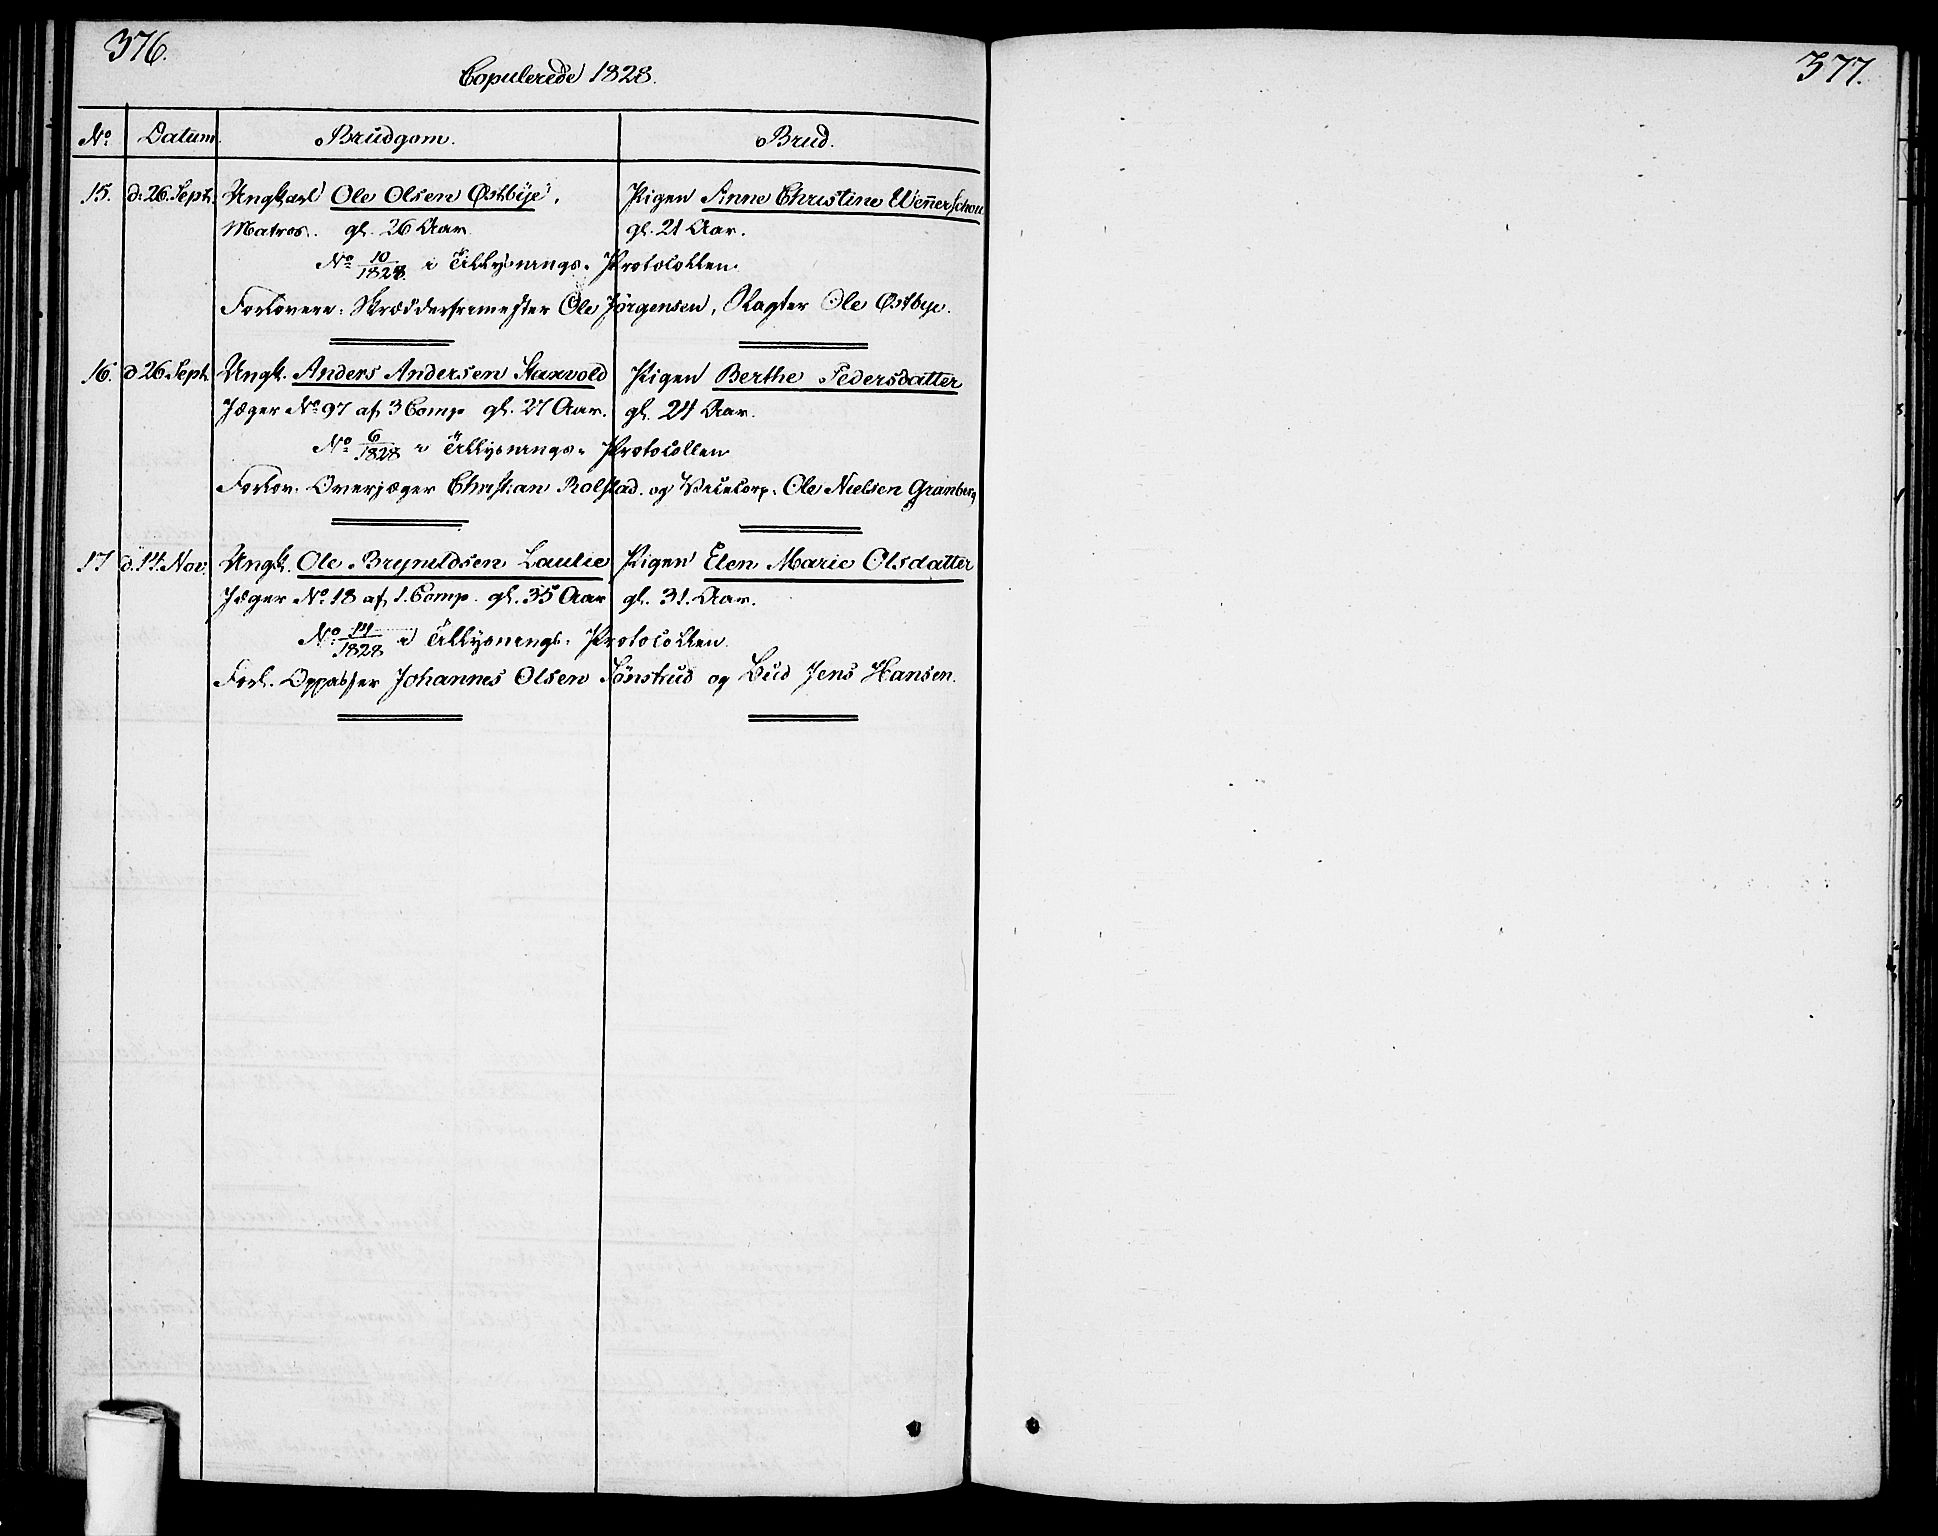 376.
377.
Copulerede 1828.
No Datum. Brudgom. Brud.
15. d. 26. Septr. Ungkarl Ole Olsen Østbye, Pigen Anne Christine Wennerschou
Matros. gl. 26 Aar. gl. 21 Aar.
No 10/1828 i Tillysnings-Protocollen.
Forlovere: Skrædderfrimester Ole Jörgensen, Slagter Ole Østbye.
16. d 26 Septr Ungk. Anders Andersen Staxvold Pigen Berthe Pedersdatter
Jæger No 97 af 3 Comp gl. 27 Aar. gl. 24 Aar.
No 6/1828 i Tillysnings-Protocollen
Forlov. Overjæger Christian Rolstad og Vicecorp. Ole Nielsen Granberg
17 d. 14. Nov. Ungk. Ole Bryneldsen Laulie Pigen Elen Marie Olsdatter
Jæger No 18 af 1. Comp. gl. 35 Aar gl. 31. Aar.
No 14/1828 i Tillysnings-Protocollen.
Forl. Oppasser Johannes Olsen Sönstrud og Bud Jens Hansen.